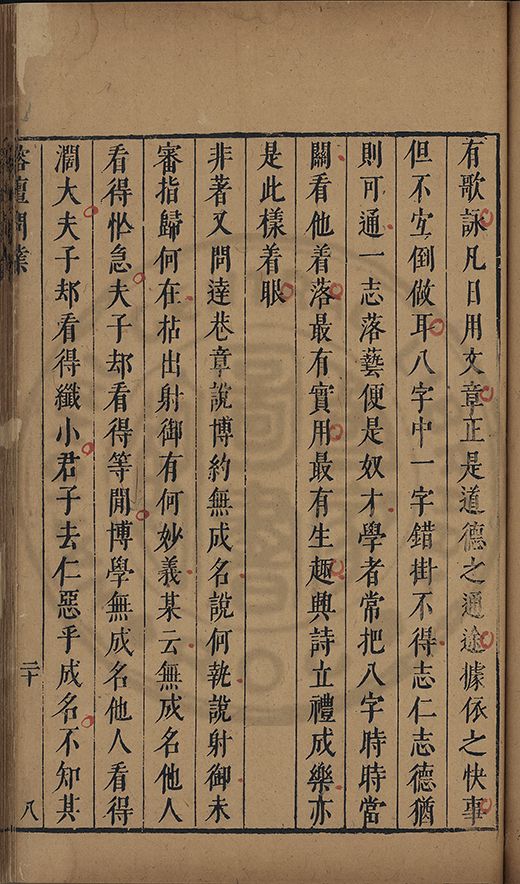 有歌詠凡日用文章正是道德之通途據依之快事
但不宜倒做耳八字中一字錯掛不得志仁志德猶
則可通一志落藝便是奴才學者常把八字時時當
關看他着落最有實用最有生趣興詩立禮成樂亦
是此樣着眼
非著又問達巷章說博約無成名說何執說射御未
審指歸何在拈出射御有何妙義某云無成名他人
看得忙急夫子却看得等閒博學無成名他人看得
濶大夫子却看得纖小君子去仁惡乎成名不知其
榕壇問業
二十
八